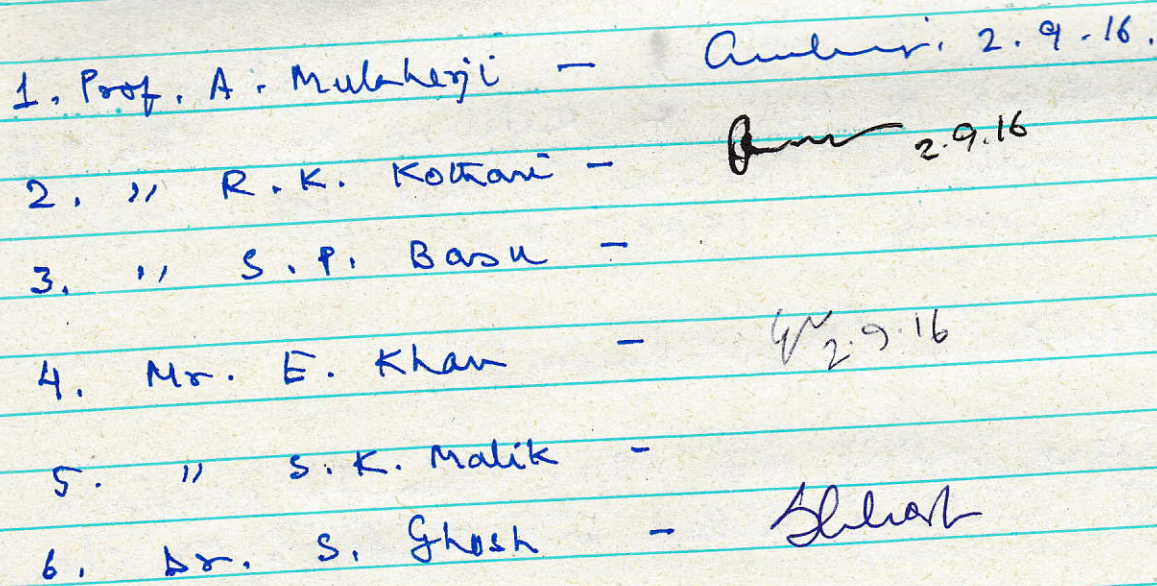 1. Prof. A. Mukherji - 2.9.16.
2. " R.K. Kothari - 2.9.16
3. " S.P. Basu -
4. Mr. E. Khan - 2.9.16
5. " S.K. Malik -
6. Dr. S. Ghosh -